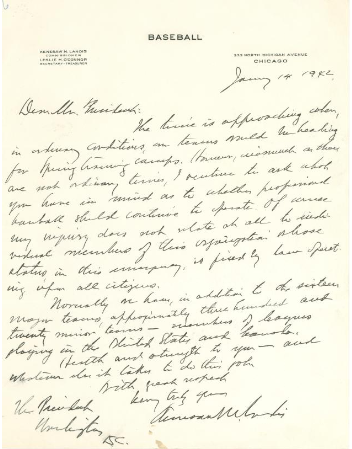 BASEBALL
KENESAW M. LANDIS
COMMISSIONER
LESLIE M. O'CONNOR
SECRETARY-TREASURER
333 NORTH MICHIGAN AVENUE
CHICAGO
14 1942.
Dear Mr. President:
The time is approaching when,
in ordinary conditions, our teams would be heading
for Spring training camps. However, inasmuch as these
are not ordinary times, I venture to ask what
you have in mind as to whether professional
baseball should continue to operate. Of course
my inquiry does not relate at all to indi-
vidual members of this organization whose
status in this emergency, is fixed by law operat
ing upon all citizens.
Normally we have, in addition to the sixteen
major teams, approximately three hundred and
twenty minor teams — members of leagues
playing in the United States and Canada.
Health and strength to you — and
whatever else it takes to do this job.
With great respect
Very truly yours
Kenesaw M. Landis
The President
Washington
D.C.